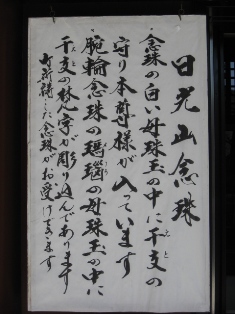 日光山念珠
・念珠の白い母珠玉の中に干支の
守り本尊様が入っています
・腕輪念珠の瑪瑙の母珠玉の中に
干支の梵字が彫り込んであります
ご祈祷した念珠がお受けできます